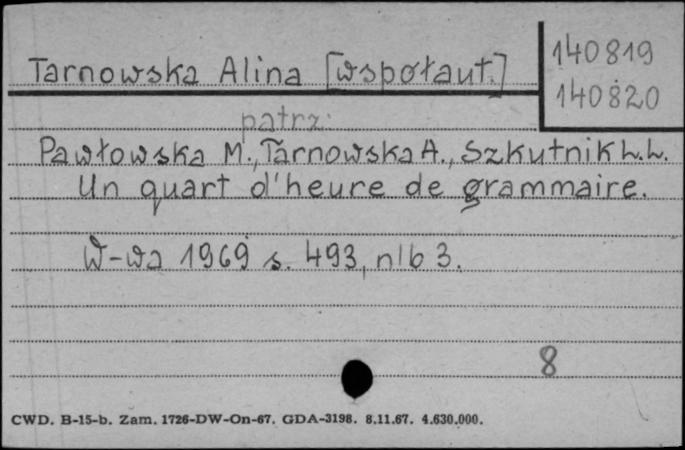 140819
Tarnowska Alina [współaut.]
140820
patrz:
Pawłowska M., Tarnowska A., Szkutnik L.L.
Un quart d'heure de grammaire.
W-wa 1969 s. 493, nlb 3.
8
CWD. B-15-b. Zam. 1726-DW-On-67. GDA-3198. 8.11.67. 4.630.000.